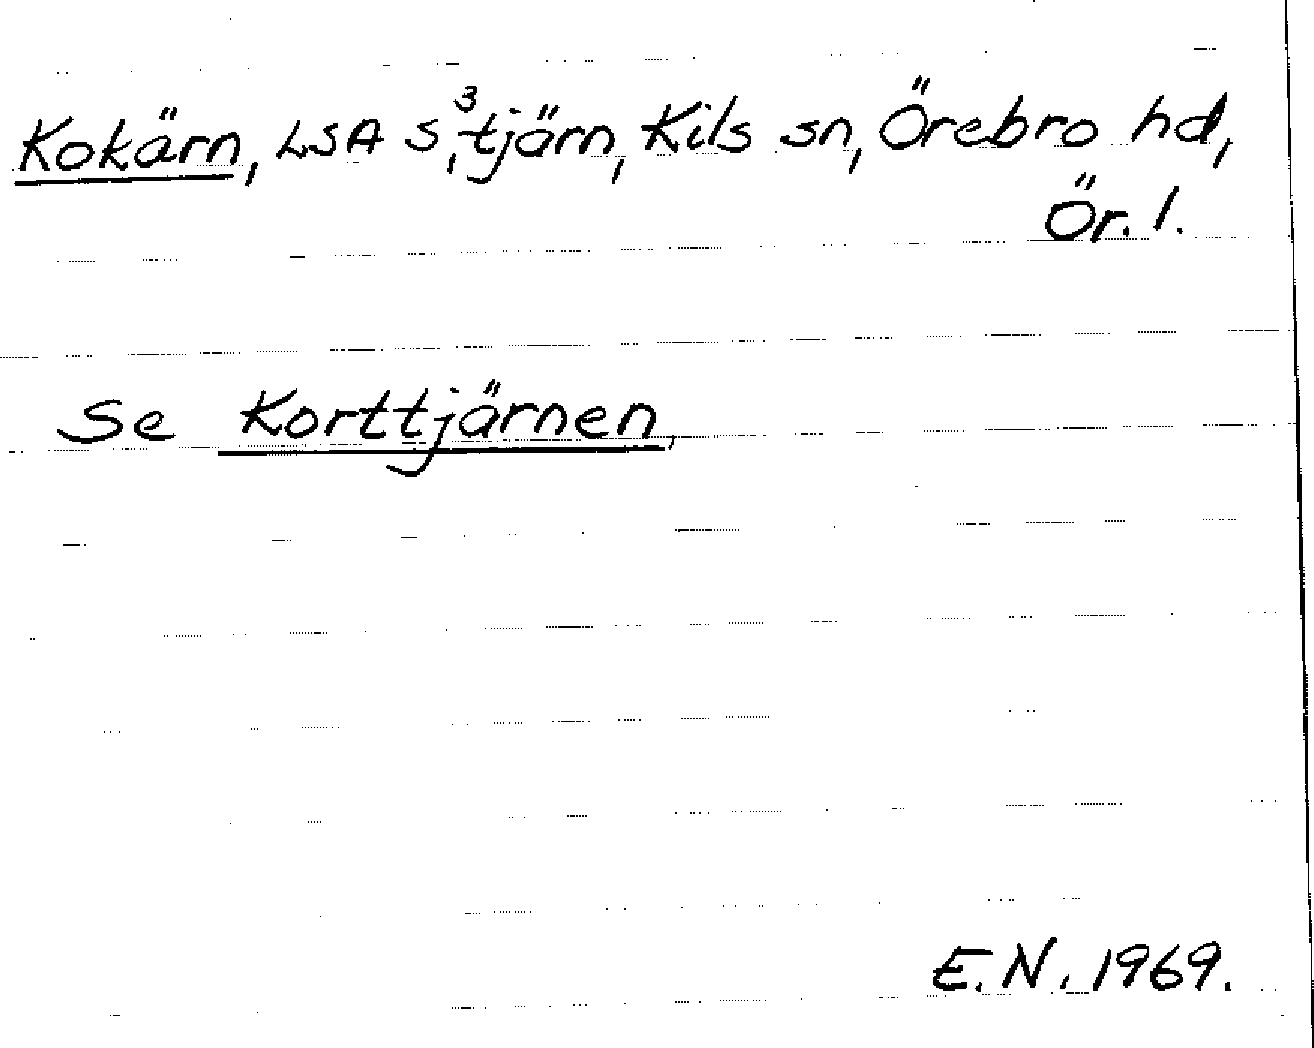 Kokärn, LSA S,³ tjärn, Kils sn, Örebro hd,
Ör. l.
Se Korttjärnen,
E.N. 1969.